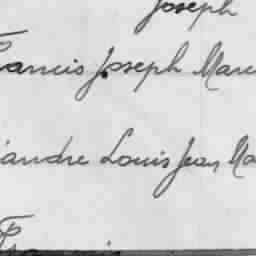 Joseph
Francis Joseph Marc
andre Louis Jean Ma
Francis